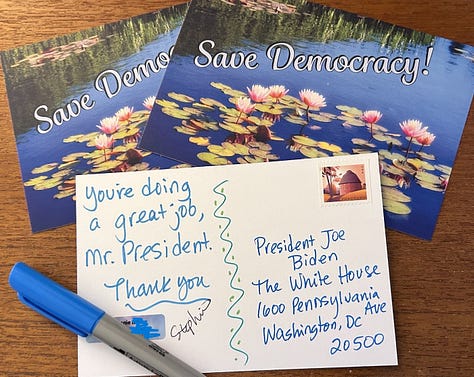 Save Demo
Save Democracy!
You're doing
a great job,
Mr. President.
Thank you
President Joe
Biden
The White House
1600 Pennsylvania
Ave
Washington, DC
20500